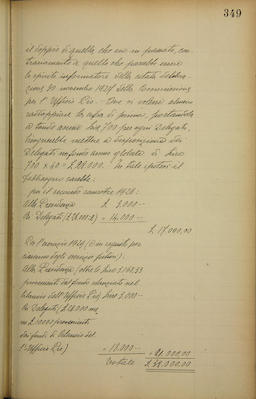 349
il doppio di quella che era in passato, con
trariamente a quello che parrebbe essere
lo spirito informatore della citata delibera
zione 30 novembre 1927 della Commissione
per l'Ufficio Pio. Ove si volesse almeno
raddoppiare la cifra di prima, portandola
a tonde annue Lire 700 per ogni Delegato,
bisognerebbe mettere a disposizione dei
Delegati un fondo annuo globale di Lire
700 x 40 = L 28.000. In tale ipotesi il
fabbisogno sarebbe:
per il secondo semestre 1928:
Alla Presidenza L 3.000 -
Ai Delegati (L 28.000:2) " 14.000 -
L 17.000,00
Per l'esercizio 1929 (e in seguito per
ciascuno degli esercizi futuri):
Alla Presidenza (oltre le Lire
provenienti dal fondo
bilancio dell'Ufficio Pio) Lire 3.000 -
Ai Delegati (L 28.000
L 10000 provenienti
dai fondi di bilancio del
l'Ufficio Pio) " 18.000 -
" 21.000,00
Totale L 38.000,00